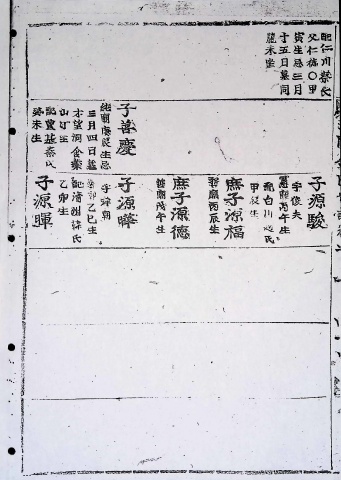 配仁川蔡氏
父仁楠〇甲
寅生忌三月
十五日墓同
麓未坐
子善慶
純廟庚辰生忌
三月四日墓
水望洞金藥
山丁坐
配豊基秦氏
癸未生
子源駿
字俊夫
憲廟丙午生
配白川趙氏
甲辰生
庶子源福
哲廟丙辰生
庶子源德
哲廟戊午生
子源曄
憲廟乙巳生
配清州韓氏
乙卯生
子源暉